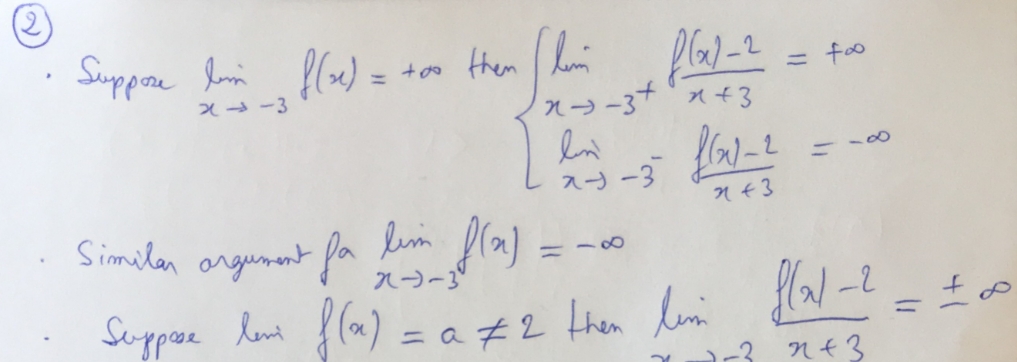 ②
· Suppose lim x→-3 f(x) = +∞ then { lim x→-3⁺ (f(x)-2)/(x+3) = +∞
lim x→-3⁻ (f(x)-2)/(x+3) = -∞
· Similar argument for lim x→-3 f(x) = -∞
· Suppose lim f(x) = a ≠ 2 then lim x→-3 (f(x)-2)/(x+3) = ± ∞